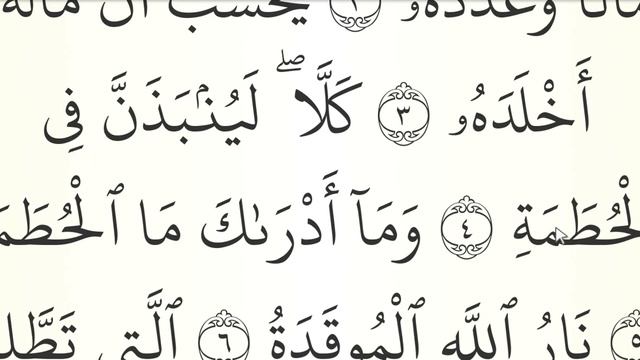 وَعَدَّدَهُۥ ٢ يَحْسَبُ أَنَّ مَالَهُ
أَخْلَدَهُۥ ٣ كَلَّا ۖ لَيُنۢبَذَنَّ فِى
لْحُطَمَةِ ٤ وَمَآ أَدْرَىٰكَ مَا ٱلْحُطَمَ
نَارُ ٱللَّهِ ٱلْمُوقَدَةُ ٦ ٱلَّتِى تَطَّلِ